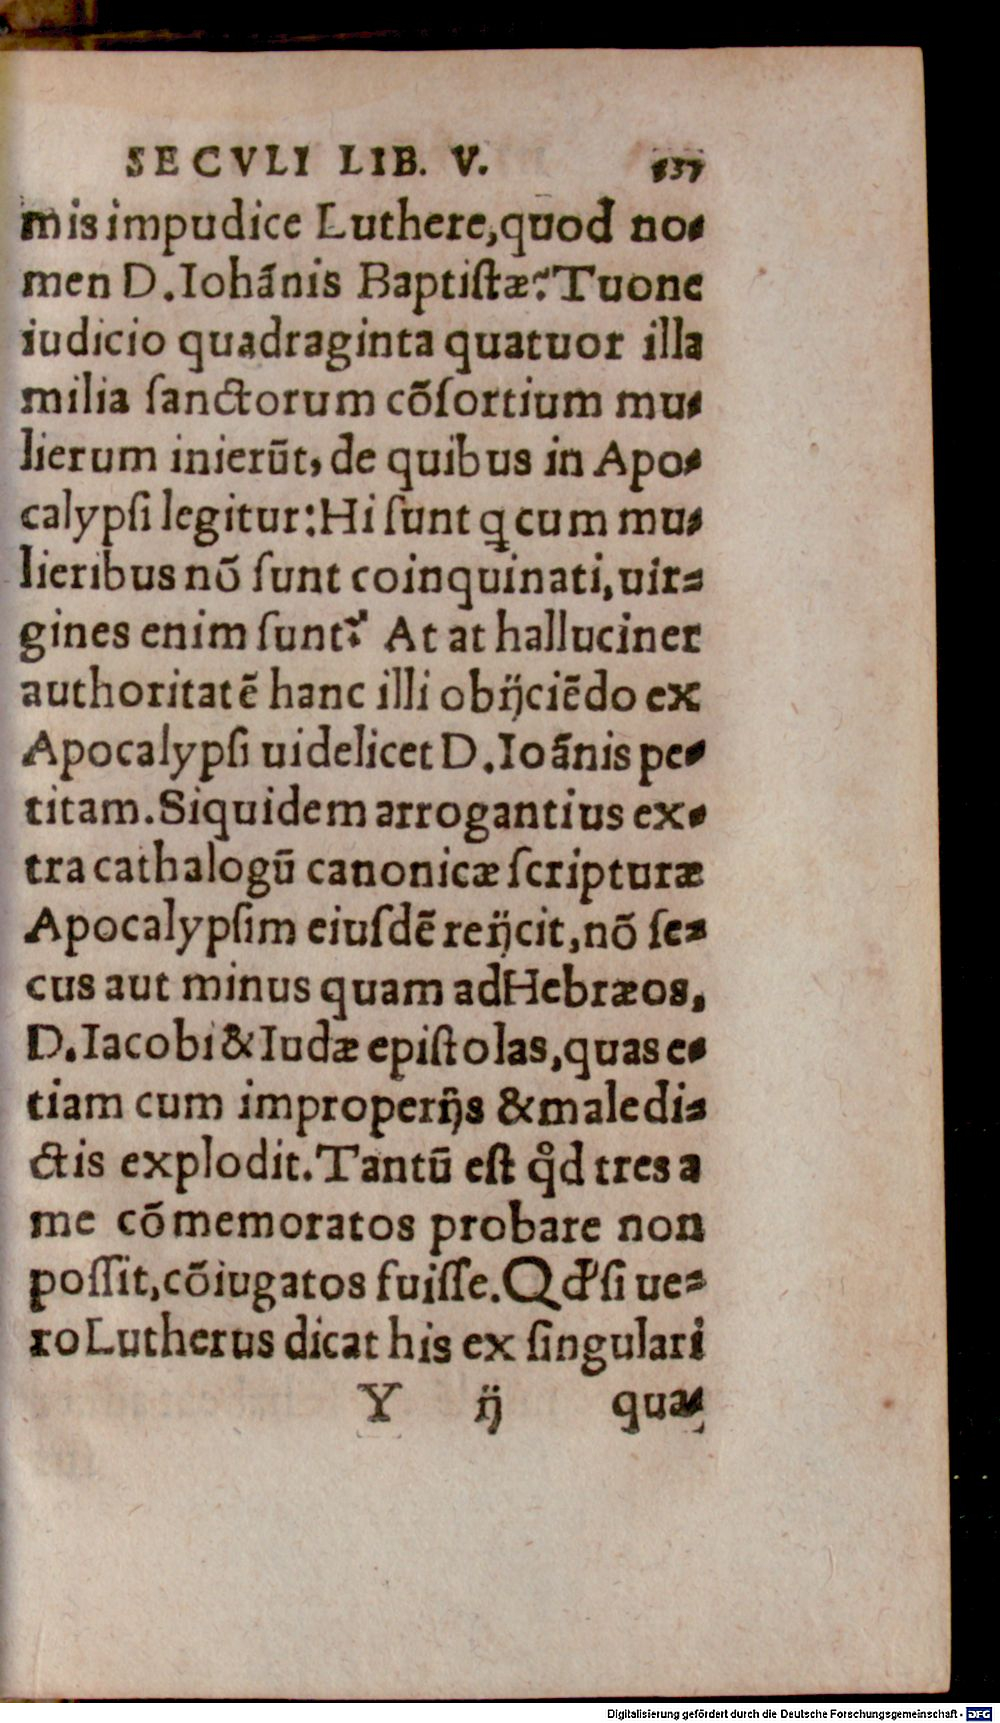 SECVLI LIB. V. 
mis impudice Luthere, quod no⸗
men D. Iohãnis Baptiſtæ? Tuone
iudicio quadraginta quatuor illa
milia ſanctorum cõſortium mu⸗
lierum inierũt, de quibus in Apo⸗
calypſi legitur: Hi ſunt ꝗ cum mu⸗
lieribus nõ ſunt coinquinati, uir⸗
gines enim ſunt? At at halluciner
authoritatẽ hanc illi obijciẽdo ex
Apocalypſi uidelicet D. Ioãnis pe⸗
titam. Siquidem arrogantius ex⸗
tra cathalogũ canonicæ ſcripturæ
Apocalypſim eiuſdẽ reijcit, nõ ſe⸗
cus aut minus quam ad Hebræos,
D. Iacobi & Iudæ epiſtolas, quas e⸗
tiam cum improperijs & maledi⸗
ctis explodit. Tantũ eſt qd̊ tres a
me cõmemoratos probare non
poſſit, cõiugatos fuiſſe. Qd' ſi ue⸗
ro Lutherus dicat his ex ſingulari
Y ij qua⸗
Digitalisierung gefördert durch die Deutsche Forschungsgemeinschaft - DFG